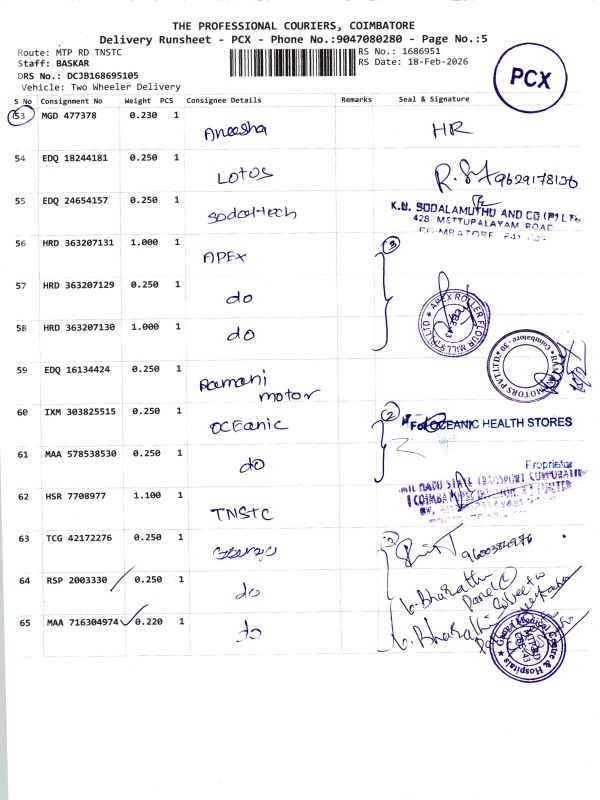 THE PROFESSIONAL COURIERS, COIMBATORE
Delivery Runsheet - PCX - Phone No.:9047080280 - Page No.:5
Route: MTP RD TNSTC
RS No.: 1686951
Staff: BASKAR
RS Date: 18-Feb-2026
DRS No.: DCJB168695105
Vehicle: Two Wheeler Delivery
PCX
S No Consignment No Weight PCS Consignee Details Remarks Seal & Signature
53 MGD 477378 0.230 1 Aneesha HR
54 EDQ 18244181 0.250 1 LOTOS 9629178136
55 EDQ 24654157 0.250 1 Sodaltech
K.U. SODALAMUTHU AND CO (P) LTD.
428 METTUPALAYAM ROAD
COIMBATORE
56 HRD 363207131 1.000 1 APEX 3
57 HRD 363207129 0.250 1 do
APEX ROLLER FLOUR MILLS P LTD
58 HRD 363207130 1.000 1 do
59 EDQ 16134424 0.250 1 Ramani motor
RAMANI MOTORS PVT.LTD. Coimbatore - 30
60 IXM 303825515 0.250 1 OCEanic 2
For OCEANIC HEALTH STORES
61 MAA 578538530 0.250 1 do
Proprietor
62 HSR 7708977 1.100 1 TNSTC
TAMIL NADU STATE TRANSPORT CORPORATION
63 TCG 42172276 0.250 1 3 9600384976
64 RSP 2003330 0.250 1 do
b. Bharathi
65 MAA 716304974 0.220 1 do
b. Bharathi
Medical Centre & Hospitals